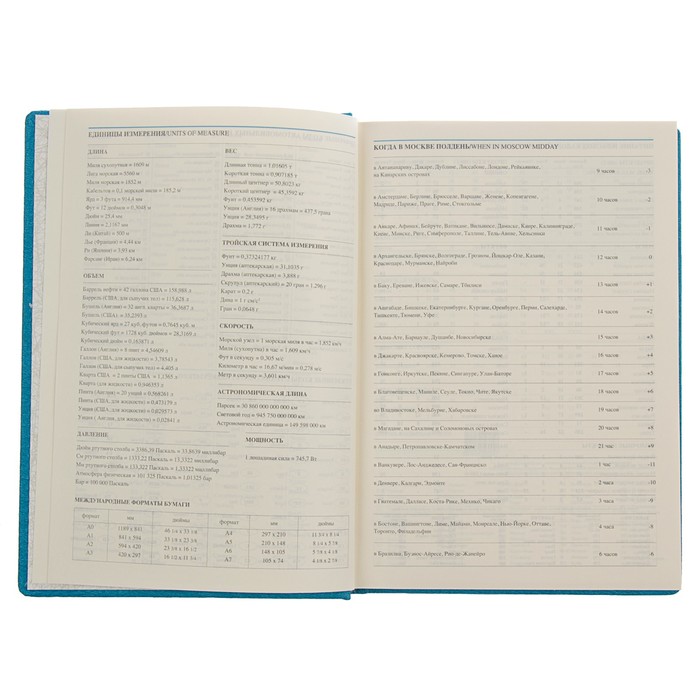 ЕДИНИЦЫ ИЗМЕРЕНИЯ/UNITS OF MEASURE
ДЛИНА
Миля сухопутная = 1609 м
Миля морская = 1852 м
Кабельтов = 0,1 морской мили = 185,2 м
Ярд = 3 фута = 914,4 мм
Фут = 12 дюймов = 0,3048 м
Дюйм = 25,4 мм
Ли (Китай) = 500 м
ОБЪЕМ
Баррель нефти = 42 галлона США = 158,988 л
Баррель (США для сыпучих тел) = 115,628 л
Кубический ярд = 27 куб.футов = 0,7645 куб. м
Кубический фут = 1728 куб. дюймов = 28,3169 л
Галлон (Англия) = 4,54609 л
Галлон (США, для жидкости) = 3,78543 л
Галлон (США, для сыпучих тел) = 4,405 л
Кварта (Англия) = 2 пинты = 1,1365 л
Пинта (Англия) = 20 унций = 0,568261 л
ДАВЛЕНИЕ
Дюйм ртутного столба = 3386,39 Паскаль = 33,8639 миллибар
См ртутного столба = 1333,22 Паскаль = 13,3322 миллибар
Мм ртутного столба = 133,322 Паскаль = 1,33322 миллибар
Атмосфера физическая = 101 325 Паскаль = 1,01325 бар
Бар = 100 000 Паскаль
ВЕС
Длинная тонна = 1,01605 т
Короткая тонна = 0,907185 т
Длинный центнер = 50,8023 кг
Короткий центнер = 45,3592 кг
Фунт = 0,453592 кг
Унция (Англия) = 16 драхмам = 437,5 грана
Унция = 28,3495 г
Драхма = 1,772 г
ТРОЙСКАЯ СИСТЕМА ИЗМЕРЕНИЯ
Фунт = 0,37324177 кг
Унция (аптекарская) = 31,1035 г
Драхма (аптекарская) = 3,888 г
Скрупул (аптекарский) = 20 гран = 1,296 г
Карат = 0,2 г
Гран = 0,0648 г
СКОРОСТЬ
Морской узел = 1 морская миля в час = 1,852 км/ч
Миля (сухопутная) в час = 1,609 км/ч
Фут в секунду = 0,305 м/с
Километр в час = 16,67 м/мин = 0,278 м/с
Метр в секунду = 3,601 км/ч
АСТРОНОМИЧЕСКАЯ ДЛИНА
Парсек = 30 860 000 000 000 км
Световой год = 945 750 000 000 км
Астрономическая единица = 149 598 000 км
МОЩНОСТЬ
1 лошадиная сила = 745,7 Вт
МЕЖДУНАРОДНЫЕ ФОРМАТЫ БУМАГИ
формат мм дюймы формат мм дюймы
A0 1189 x 841 A4 297 x 210
A1 841 x 594 A5 210 x 148
A2 594 x 420 A6 148 x 105
A3 420 x 297 A7 105 x 74
КОГДА В МОСКВЕ ПОЛДЕНЬ/WHEN IN MOSCOW MIDDAY
Дакаре, Дублине, Лиссабоне, Лондоне, Рейкьявике,
на Канарских островах 9 часов -3
в Амстердаме, Берлине, Брюсселе, Варшаве, Женеве, Копенгагене,
Мадриде, Париже, Праге, Риме, Стокгольме 10 часов -2
в Анкаре, Афинах, Бейруте, Вильнюсе, Дамаске, Каире, Калининграде,
Киеве, Минске, Риге, Симферополе, Таллине, Тель-Авиве, Хельсинки 11 часов -1
в Архангельске, Брянске, Волгограде, Грозном, Йошкар-Оле, Казани,
Краснодаре, Мурманске, Найроби 12 часов 0
в Баку, Ереване, Ижевске, Самаре, Тбилиси 13 часов +1
в Ашхабаде, Бишкеке, Екатеринбурге, Кургане, Оренбурге, Перми, Салехарде,
Ташкенте, Тюмени, Уфе 14 часов +2
в Алма-Ате, Барнауле, Душанбе, Новосибирске 15 часов +3
в Джакарте, Красноярске, Кемерово, Томске, Ханое 16 часов +4
в Гонконге, Иркутске, Пекине, Сингапуре, Улан-Баторе 17 часов +5
в Благовещенске, Маниле, Сеуле, Токио, Чите, Якутске 18 часов +6
во Владивостоке, Мельбурне, Хабаровске 19 часов +7
в Магадане, на Сахалине и Соломоновых островах 20 часов +8
в Анадыре, Петропавловске-Камчатском 21 час +9
в Ванкувере, Лос-Анджелесе, Сан-Франциско 1 час -11
в Денвере, Калгари, Эдмонте 2 часа -10
в Гватемале, Далласе, Коста-Рике, Мехико, Чикаго 3 часа -9
в Бостоне, Вашингтоне, Лиме, Майами, Монреале, Нью-Йорке, Оттаве,
Торонто, Филадельфии 4 часа
в Бразилиа, Буэнос-Айресе, Рио-де-Жанейро 6 часов -6